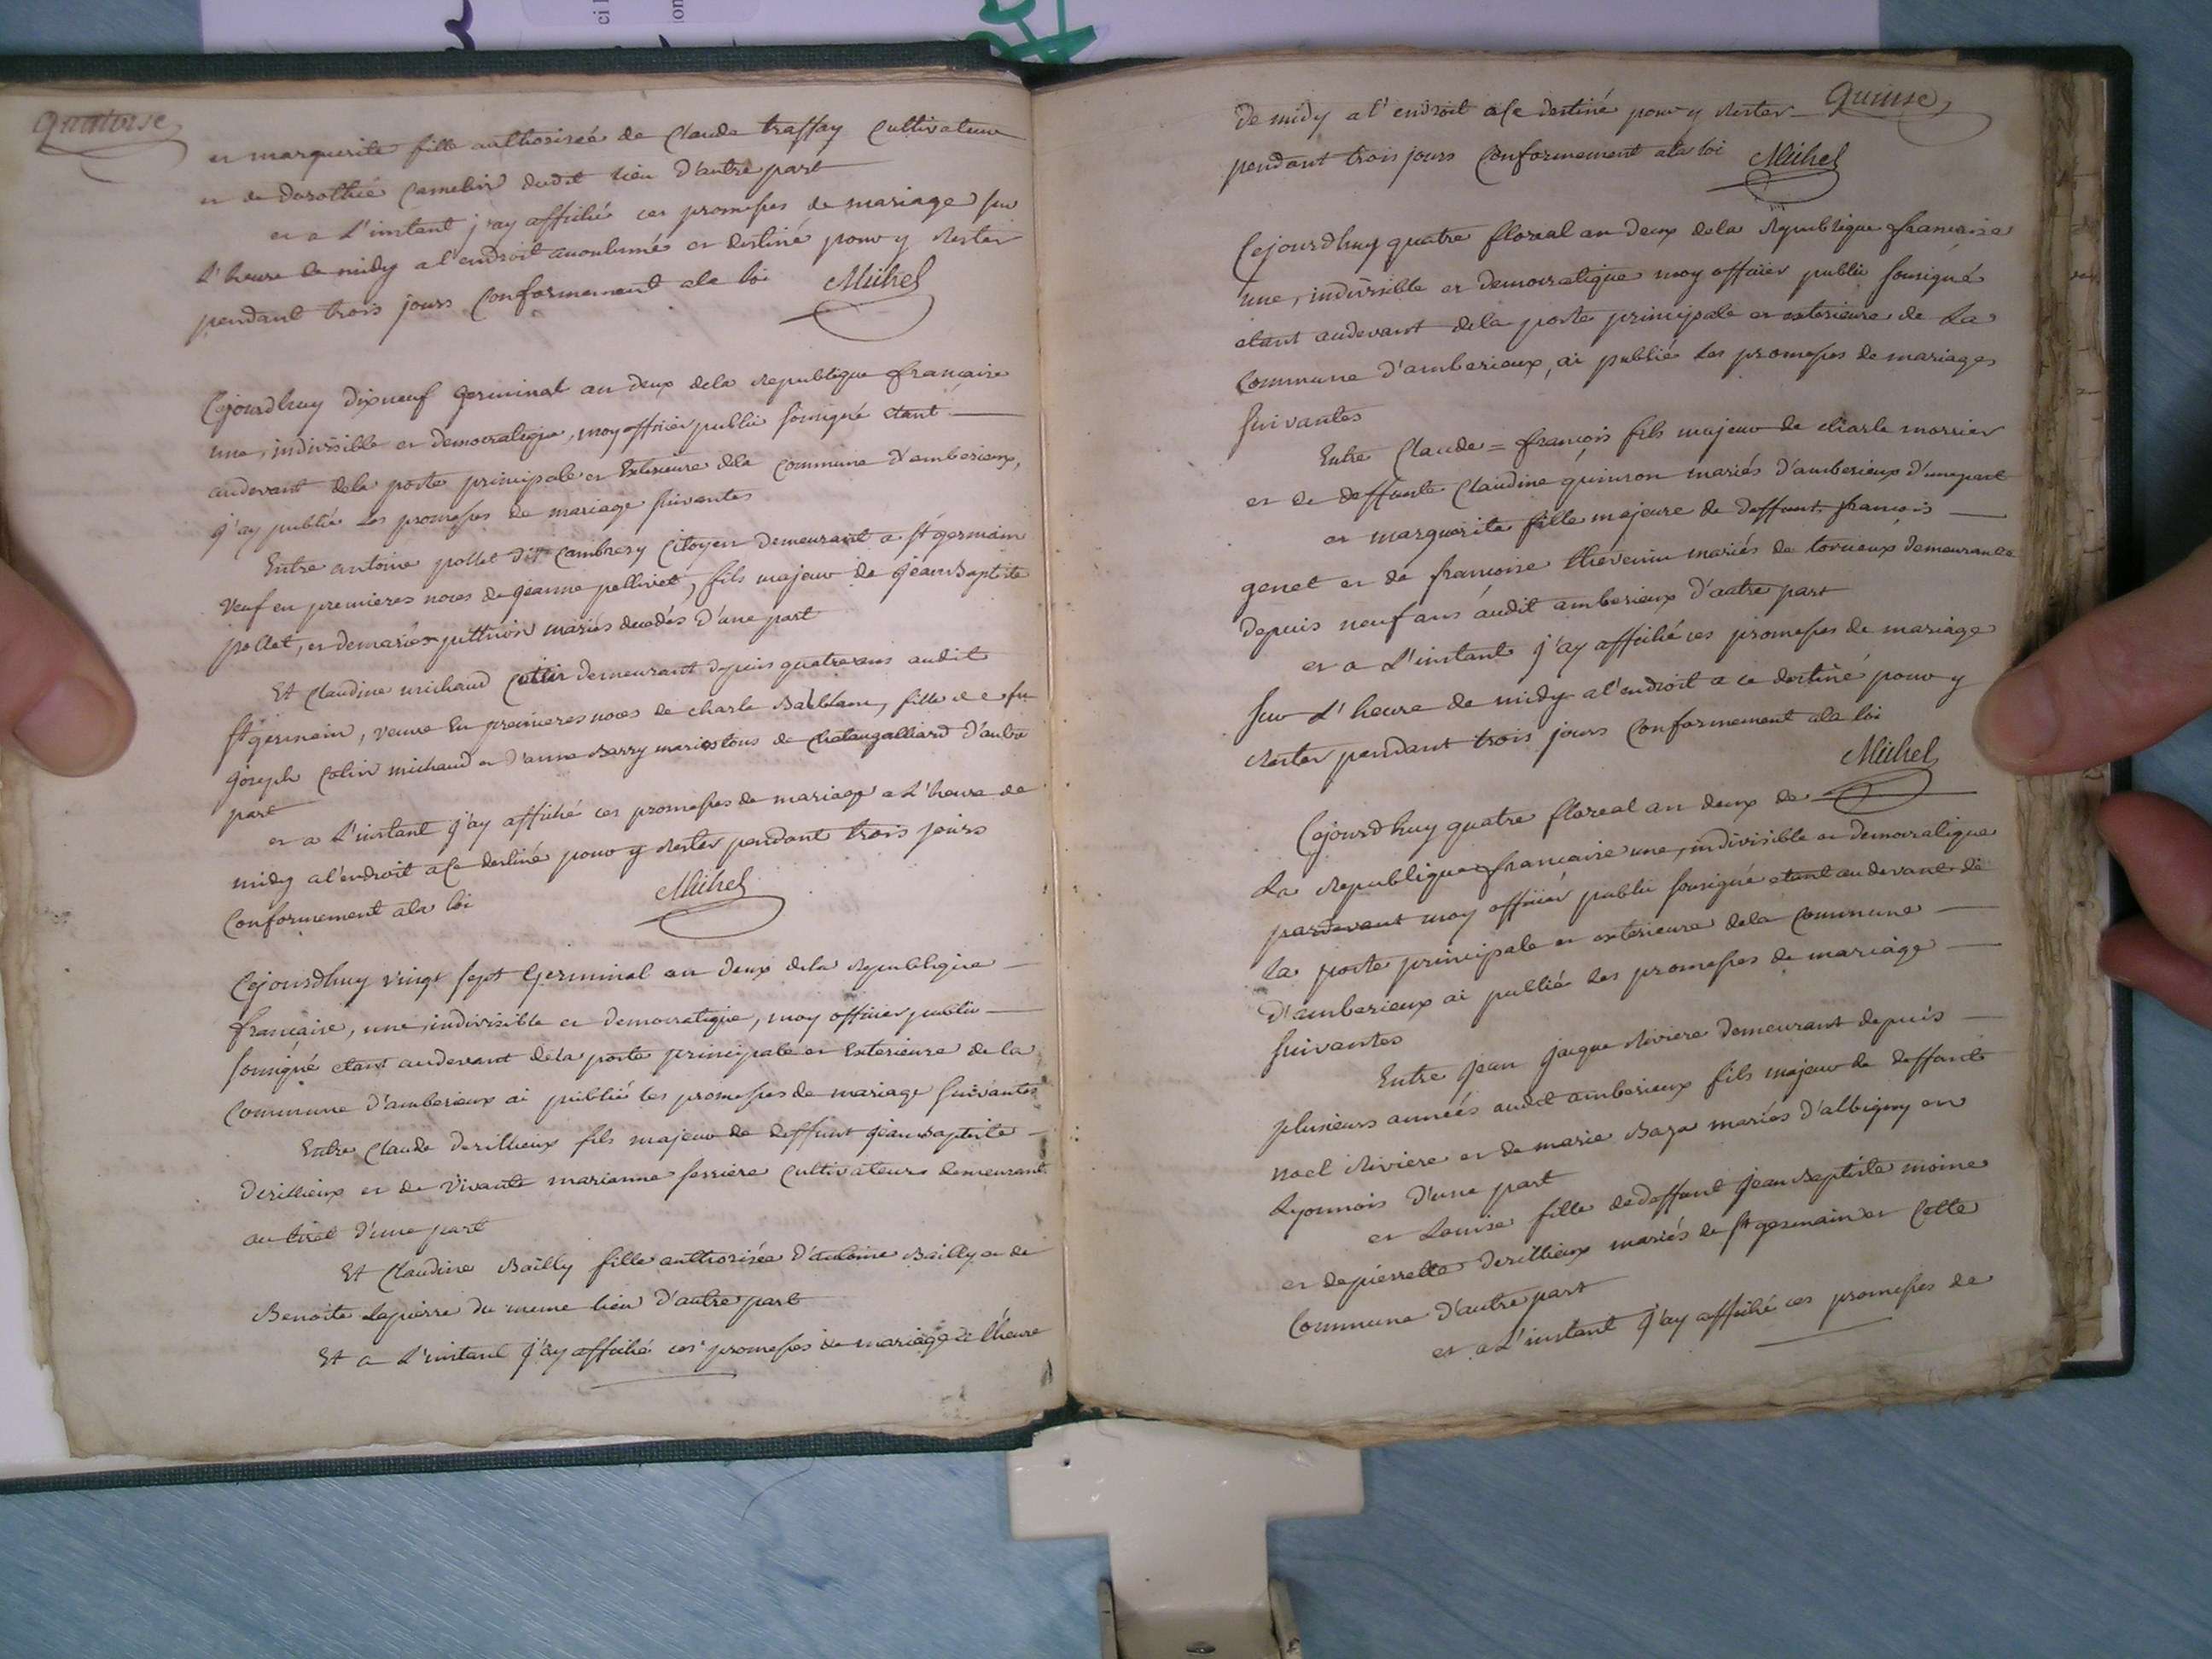 quatorse
et marguerite fille authorisée de Claude traffay Cultivateur
et de dorothée Camelin dudit lieu d'autre part
et a L'instant j'ay affiché ces promesses de mariage sur
L'heure de midy a l'endroit acoutumé et destiné pour y rester
pendant trois jours Conformement a la loi Michel
Cejourdhuy dixneuf germinal an deux dela republique française
une, indivisible et democratique, moy officier public sousigné etant
audevant dela porte principale et Exterieure dela Commune d'amberieux,
j'ay publié les promesses de mariage suivantes
Entre antoine pollet dit Cambrey Citoyen demeurant a st germain
veuf en premieres noces de jeanne pellivet, fils majeur de jean Baptiste
pollet, et de mariés decedés d'une part
Et Claudine michaud Collin demeurant depuis quatre ans audit
st germain, veuve En premieres noces de charle fille de fu
joseph Colin michaud et d'anne Barry mariés tous de Chataugalliard d'autre
part
et a L'instant j'ay affiché ces promesses de mariage a L'heure de
midy a l'endroit a Ce destiné pour y rester pendant trois jours
Conformement ala loi Michel
Cejourdhuy vingt sept Germinal an deux dela republique
française, une, indivisible et democratique, moy officier public
sousigné etant audevant dela porte principale et Exterieure de la
Commune d'amberieux ai publié les promesses de mariage suivantes
Entre Claude derillieux fils majeur de deffunt jean Baptiste
derillieux et de vivante marianne ferriere Cultivateurs demeurant
au tiret d'une part
Et Claudine Bailly fille authorisée d'antoine Bailly et de
Benoite Lapierre du meme lieu d'autre part
Et a L'instant j'ay affiché ces promesses de mariage a l'heure
quinse
de midy a l'endroit a Ce destiné pour y rester
pendant trois jours Conformement ala loi Michel
Cejourdhuy quatre floreal an deux dela republique française
une, indivisible et democratique moy officier public sousigné
etant audevant dela porte principale et exterieure de La
Commune d'amberieux, ai publié les promesses de mariages
suivantes
Entre Claude = françois fils majeur de charle morrier
et de deffunte Claudine quinson mariés d'amberieux d'une part
et marguerite fille majeure de deffunt françois
genet et de françoise thevenin mariés de torcieux demeurante
depuis neuf ans audit amberieux d'autre part
et a L'instant j'ay affiché ces promesses de mariage
sur L'heure de midy a l'endroit a ce destiné pour y
rester pendant trois jours Conformement ala loi
Michel
Cejourdhuy quatre floreal an deux de
La republique française une, indivisible et democratique
pardevant moy officier public sousigné etant audevant de
la porte principale et exterieure dela Commune
d'amberieux ai publié les promesses de mariage
suivantes
Entre jean jacque riviere demeurant depuis
plusieurs années audit amberieux fils majeur de deffunts
noel riviere et de marie Baza mariés d'albigny en
Lyonnois d'une part
et Louise fille de deffunt jean Baptiste moine
et de pierrette derillieux mariés de st germain en Cette
Commune d'autre part
et a L'instant j'ay affiché ces promesses de